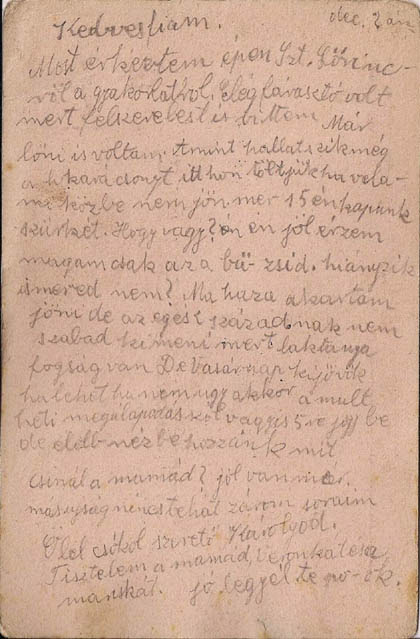 dec. 2 án
Kedvesfiam.
Most érkeztem épen Szt. Lőrinc-
ről a gyakorlatról. Elég fárasztó volt
mert felszerelést is vittem. Már
lőni is voltam. Amint hallatszik még
a karácsonyt itthon töltjük ha vala-
mi közbe nem jön mer 15 én kapunk
szürkét. Hogy vagy? én jól érzem
magam csak az a bü- zsid. hiányzik
ismered nem? Ma haza akartam
jöni de az egész századnak nem
szabad kimeni mert laktanya
fogság van De Vasárnap kijövök
ha lehet ha nem ugy akkor a mult
heti megálapodás szól vagyis 5 re jöjj be
de előbb nézbe hozzánk mit
csinál a mamád? jól van már.
más ujság nincs tehát zárom soraim
Ölel csókol szerető Károlyod.
Tisztelem a mamád, Veronkát és a
mariskát. jó legyél te